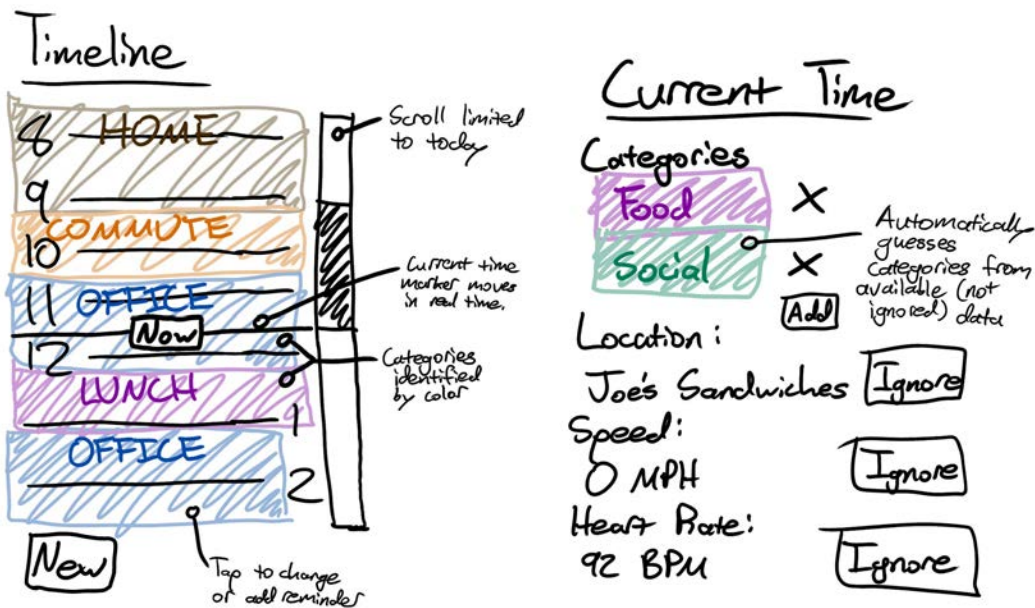 Timeline
8 HOME
9
COMMUTE
10
11 OFFICE
Now
12
LUNCH
1
OFFICE
2
New
Scroll limited
to today
Current time
marker moves
in real time.
Categories
identified
by color
Tap to change
or add reminder
Current Time
Categories
Food X
Social X
Add
Automatically
guesses
categories from
available (not
ignored) data
Location:
Joe's Sandwiches Ignore
Speed:
0 MPH Ignore
Heart Rate:
92 BPM Ignore